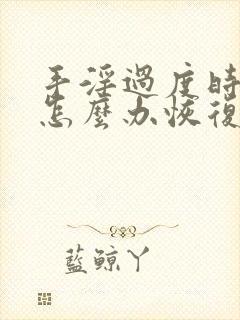 手淫過度時
怎麼办恢復
藍鯨丫